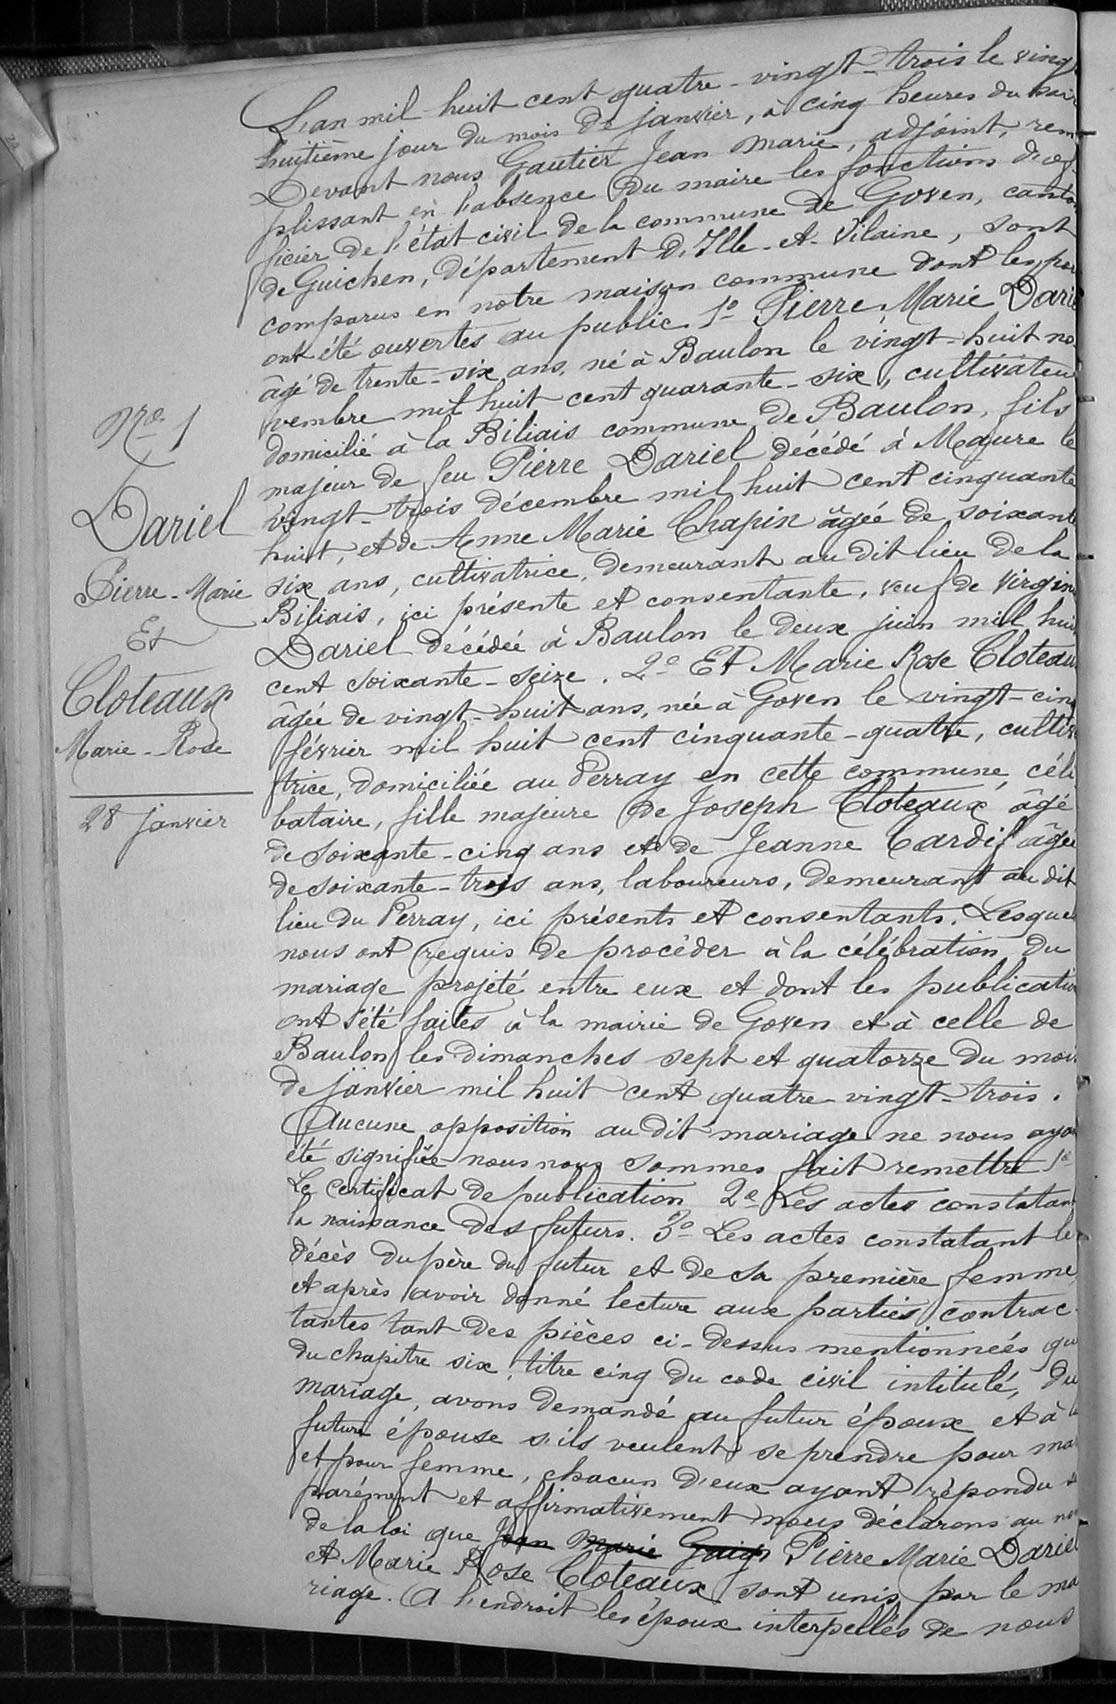 No 1
Dariel
Pierre-Marie
Et
Cloteaux
Marie-Rose
28 janvier
L'an mil huit cent quatre-vingt-trois le vingt
huitième jour du mois de janvier, à cinq heures du soir
Devant nous Gautier Jean Marie, adjoint, rem
plissant en l'absence du maire les fonctions d'of
ficier de l'état civil de la commune de Goven, canton
de Guichen, département d'Ille-et-Vilaine, sont
comparus en notre maison commune dont les por
ont été ouvertes au public 1o Pierre Marie Darie
âgé de trente-six ans, né à Baulon le vingt-huit no
vembre mil huit cent quarante-six, cultivateur
domicilié à la Biliais commune de Baulon, fils
majeur de feu Pierre Dariel décédé à Maure le
vingt-trois décembre mil huit cent cinquante
huit, et de Anne Marie Chapin âgée de soixante
six ans, cultivatrice, demeurant au dit lieu de la
Biliais, ici présente et consentante, veuf de Virgin
Dariel décédée à Baulon le deux juin mil hui
cent soixante-seize. 2o Et Marie Rose Cloteaux
âgée de vingt-huit ans, née à Goven le vingt-cinq
février mil huit cent cinquante-quatre, cultiva
trice, domiciliée au Perray en cette commune, céli
bataire, fille majeure de Joseph Cloteaux âgé
de soixante-cinq ans et de Jeanne Tardif âgée
de soixante-trois ans, laboureurs, demeurant au dit
lieu du Perray, ici présents et consentants. Lesquel
nous ont requis de procéder à la célébration du
mariage projeté entre eux et dont les publication
ont été faites à la mairie de Goven et à celle de
Baulon les dimanches sept et quatorze du mois
de janvier mil huit cent quatre-vingt-trois.
Aucune opposition au dit mariage ne nous ayan
été signifiée nous nous sommes fait remettre 1o
Le certificat de publication 2o Les actes constatant
la naissance des futurs. 3o Les actes constatant le
décès du père du futur et de sa première femme
et après avoir donné lecture aux parties contrac-
tantes tant des pièces ci-dessus mentionnées que
du chapitre six, titre cinq du code civil intitulé, du
mariage, avons demandé au futur époux et à la
future épouse s'ils veulent se prendre pour mar
et pour femme, chacun d'eux ayant répondu sé
parément et affirmativement nous déclarons au nom
de la loi que Jean Marie Pierre Marie Dariel
et Marie Rose Cloteaux sont unis par le ma
riage. A l'endroit les époux interpellés de nous